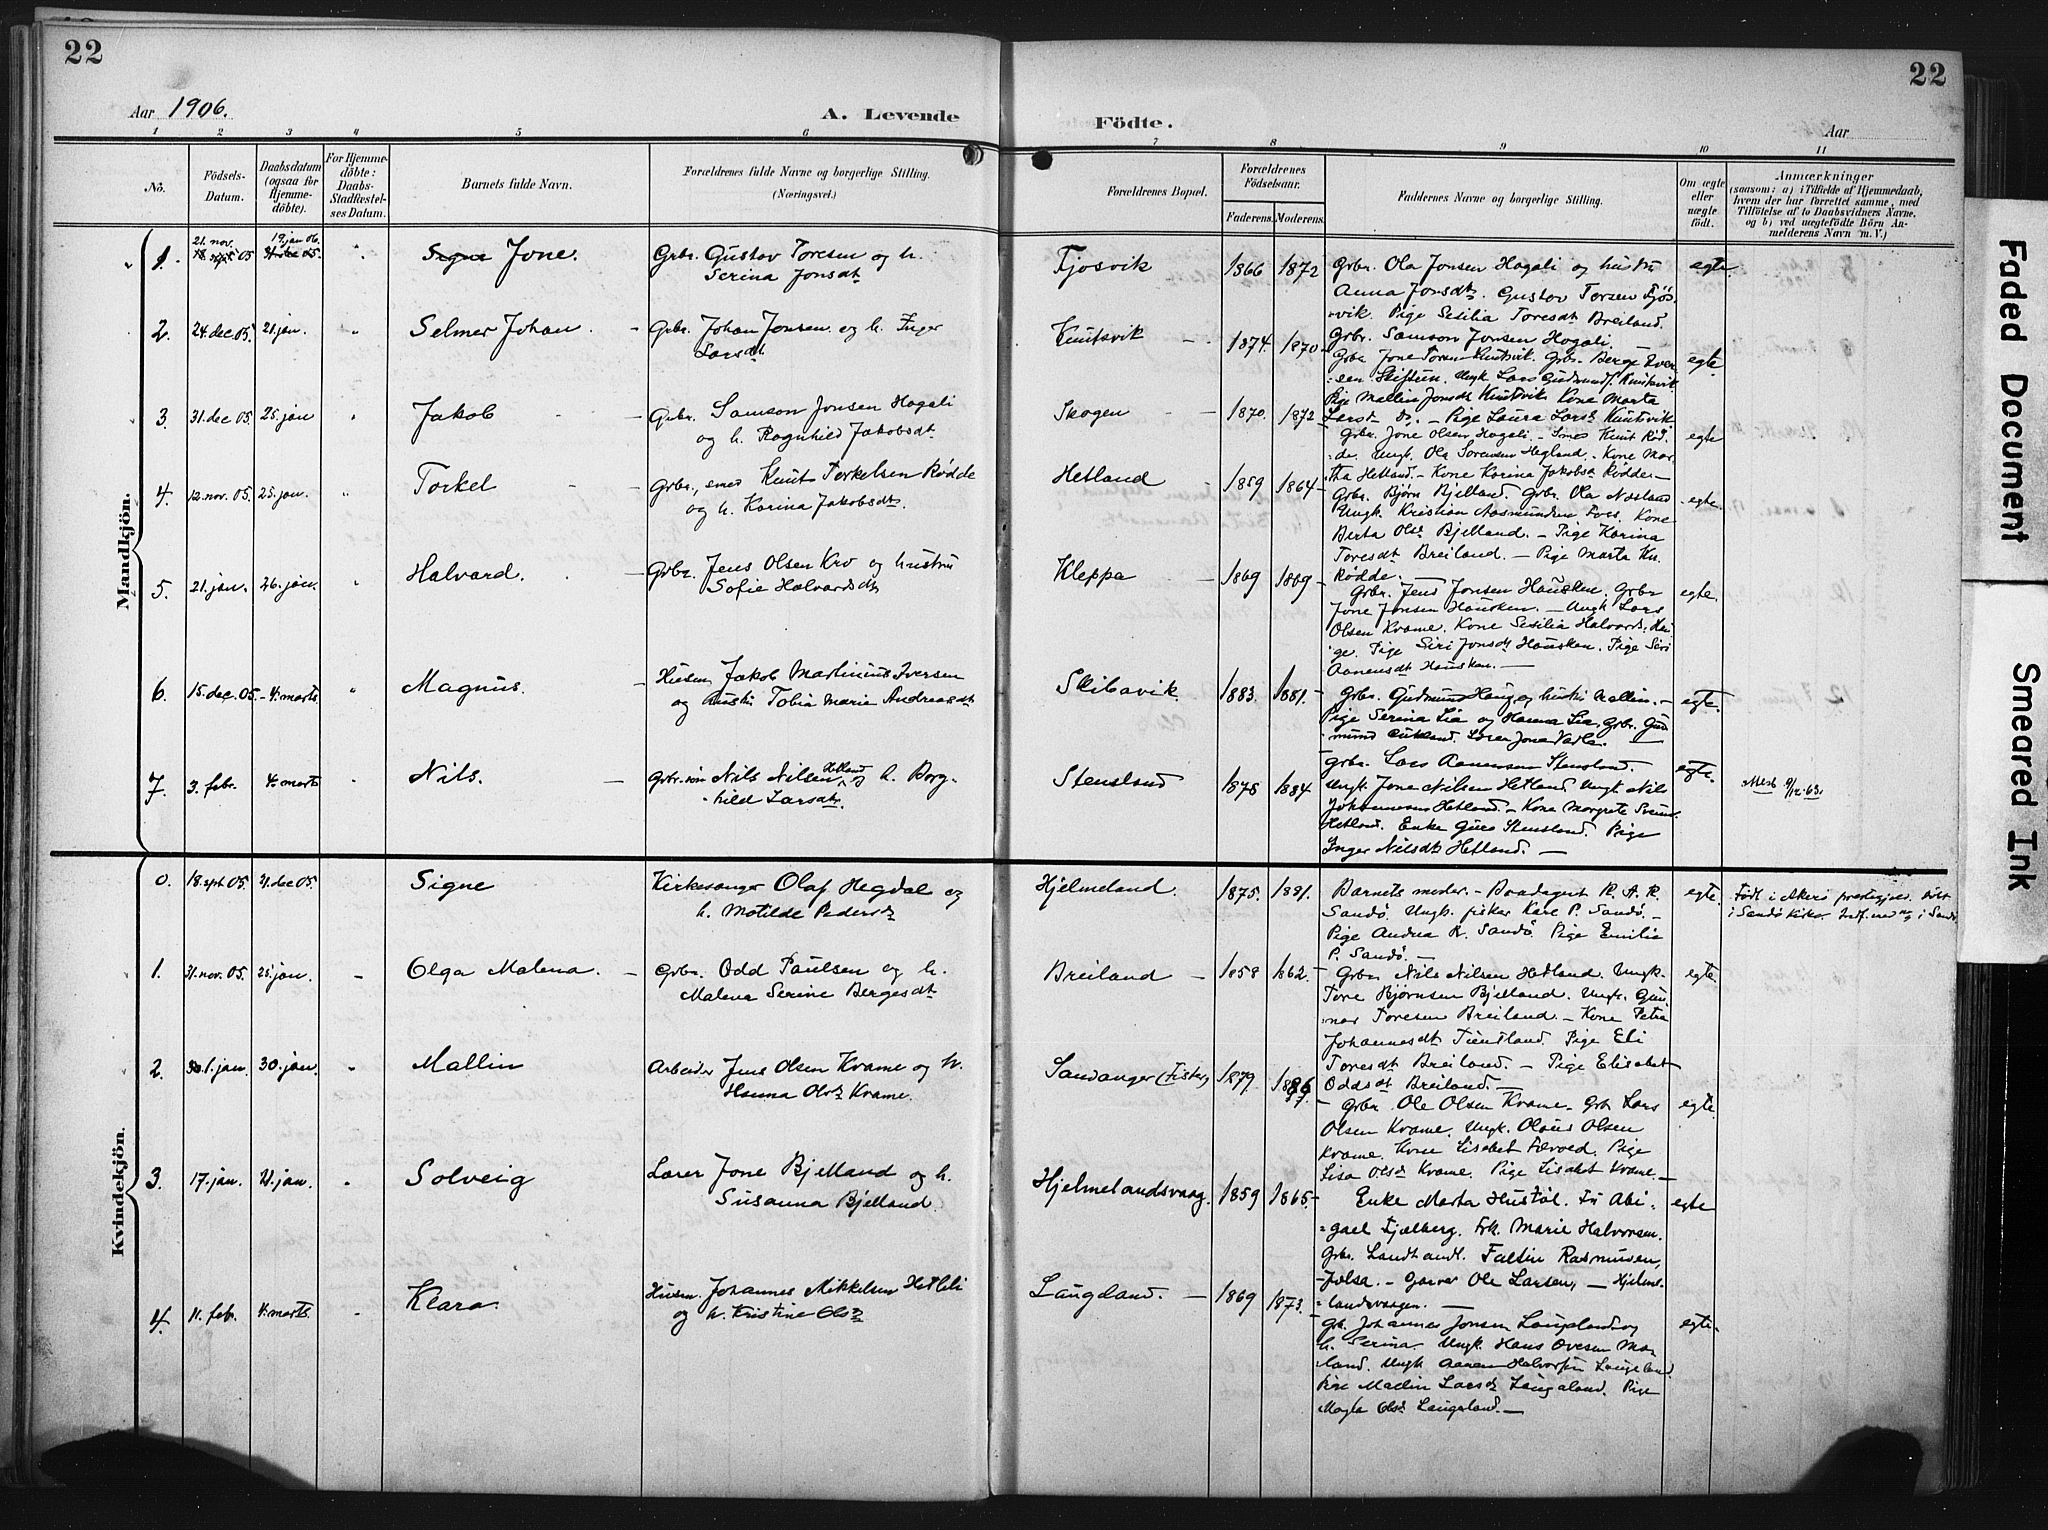 22
22
Aar 1906.
A. Levende
Födte.
Aar
1 2 3 4 5 6 7 8 9 10 11
No.
Födsels-Datum.
Daabsdatum (ogsaa for Hjemme-döbte).
For Hjemme-döbte: Daabs-Stadfæstel-ses Datum.
Barnets fulde Navn.
Forældrenes fulde Navne og borgerlige Stilling.
(Næringsvei.)
Forældrenes Bopæl.
Forældrenes Födselsaar.
Faderens. Moderens.
Faddernes Navne og borgerlige Stilling.
Om ægte eller uægte födt.
Anmærkninger
(saasom: a) i Tilfælde af Hjemmedaab,
hvem der har forrettet samme, med
Tilföielse af to Daabsvidners Navne,
og b) ved uægtefödte Börn An-
melderens Navn m. V.)
Mandkjön.
1. 21. nov. 18. sept 05 19. jan 06. 31 dec 05. " Signe Jone. Grbr. Gustav Toresen og h.
Serina Jonsdt
Fjosvik 1866 1872 Grbr. Ola Jonsen Hagali og hustru
Anna Jonsdt. Gustav Torsen Fjøs-
vik. Pige Sesilia Toresdt Breiland.
Grbr. Samson Jonsen Hogali.
egte.
2. 24. dec 05. 21. jan. " Selmer Johan. - Grbr. Johan Jonsen og h. Inger
Larsdt
Knutsvik 1874. 1870 Grbr. Jone Toresen Knutsvik. Grbr. Berge Iver-
sen Skiftun. Ungk Lars Gudmunds. Knutsvik
Pige Mallin Jonsdt Knutsvik Kone Marta
Larsdt do. - Pige Laura Larsdt Knutsvik
egte.
3. 31. dec 05. 25. jan " Jakob - Grbr. Samson Jonsen Hogali
og h. Ragnhild Jakobsdt.
Skogen 1870. 1872 Grbr. Jone Olsen Hogali. - Smed Knut Rød-
de. Ungk. Ola Sorensen Hegland. - Kone Mar-
tha Hetland. - Kone Karina Jakobsdt Rødde -
egte
4. 12. nov. 05. 25. jan. " Torkel Grbr., smed Knut Torkelsen Rødde
og h. Karina Jakobsdt.
Hetland 1859 1864 Grbr. Bjørn Bjelland. Grbr. Ola Næsland
Ungk. Kristian Aasmundsen Foss. Kone
Berta Olsdt Bjelland. - Pige Karina
Toresdt Breiland. - Pige Marta Kn.
Rødde. -
egte.
5. 21. jan. 26. jan. " Halvard. - Grbr. Jens Olsen Kro og hustru
Sofie Halvardsdt
Kleppa 1869 1869 Grbr. Jens Jonsen Hausken. Grbr
Jone Jonsen Hausken. - Ungk Lars
Olsen Kvame. Kone Sesilia Halvards. Hau-
ge. Pige Siri Jonsdt Hausken. Pige Siri
Aanensdt Hausken. -
egte.
6. 15. dec. 05. 4. marts " Magnus. - Husm. Jakob Martinius Iversen
og hustru Tobia Marie Andreasdt
Skibavik 1883. 1881. Grbr. Gudmund Haug og hustru Mallin. -
Pige Serina Lia og Hanna Lia. Grbr. Gud-
mund Lurer Jone
egte.
7. 3. febr. 4. marts " Nils. - Grbr. søn Nils Nilsen Hetland og h. Borg-
hild Larsdt.
Stensland 1878 1884 Grbr. Lars Aanensen Stensland.
Ungk. Jone Nilsen Hetland Ungk Nils
Johannesen Hetland. - Kone Margrete Svens.
Hetland. Enke Guro Stensland. Pige
Inger Nilsdt Hetland. -
egte. Attest 9/12-63.
Kvindekjön.
0. 18. sept 05. 31. dec 05. Signe Kirkesanger Olaf Hegdal og
h. Matilde Pedersdt
Hjelmeland. 1875. 1881. Barnets moder. - Baadagent R. A. R.
Sandø. Ungk. fisker Kare P. Sandø. -
Pige Andrea R. Sandø. Pige Emilie
P. Sandø. -
egte. Født i Akerø prestegjeld. Døbt
i Sandø Kirke. Indf. med no i Sandø
1. 21. nov. 05. 25. jan - Olga Malena. - Grbr. Odd Paulsen og h.
Malena Serine Bergesdt
Breiland - 1858 1862. Grbr Nils Nilsen Hetland. Ungk.
Tore Bjørnsen Bjelland. Ungk. Gun-
nar Toresen Breiland. - Kone Petra
Johannesdt Tuntland. Pige Eli
Toresdt Breiland. - Pige Elisabet
Oddsdt Breiland. -
egte
2. 1. jan. 30. jan. " Mallin Arbeider Jens Olsen Kvame og h.
Hanna Olsdt Kvame.
Sandanger (Fister) 1879 1886 Grbr. Ole Olsen Kvame. Grb Lars
Olsen Kvame. Ungk. Olaus Olsen
Kvame. Kone Lisabet Førvod. Pige
Lisa Olsdt Kvame. Pige Lisabet Kvame -
egte.
3. 17. jan. 21. jan. " Solveig Lærer Jone Bjelland og h.
Susanna Bjelland.
Hjelmelandsvaag. 1859 1865. Enke Marta Hustøl. Fru Abi-
gael Fjælberg. Frk. Marie Halvorsen.
Grbr. Landhandl. Faltin Rasmussen,
Jølsa. - Garver Ole Larsen, - Hjelme-
landsvaagen. -
egte
4. 11. feb. 4. marts. " Klara. Husm. Johannes Mikkelsen Hetleli
og h. Kristine Olsdt
Laugaland. - 1869 1873. Grb. Johannes Jonsen Laugaland og
h. Serina. Ungk. Hans Ovesen Mæ-
land. Ungk Aanen Halvorsen Laugeland
Pige Mallin Larsdt Laugaland. Pige
Magla Olsdt Laugaland. -
egte.
Faded Document
Smeared Ink